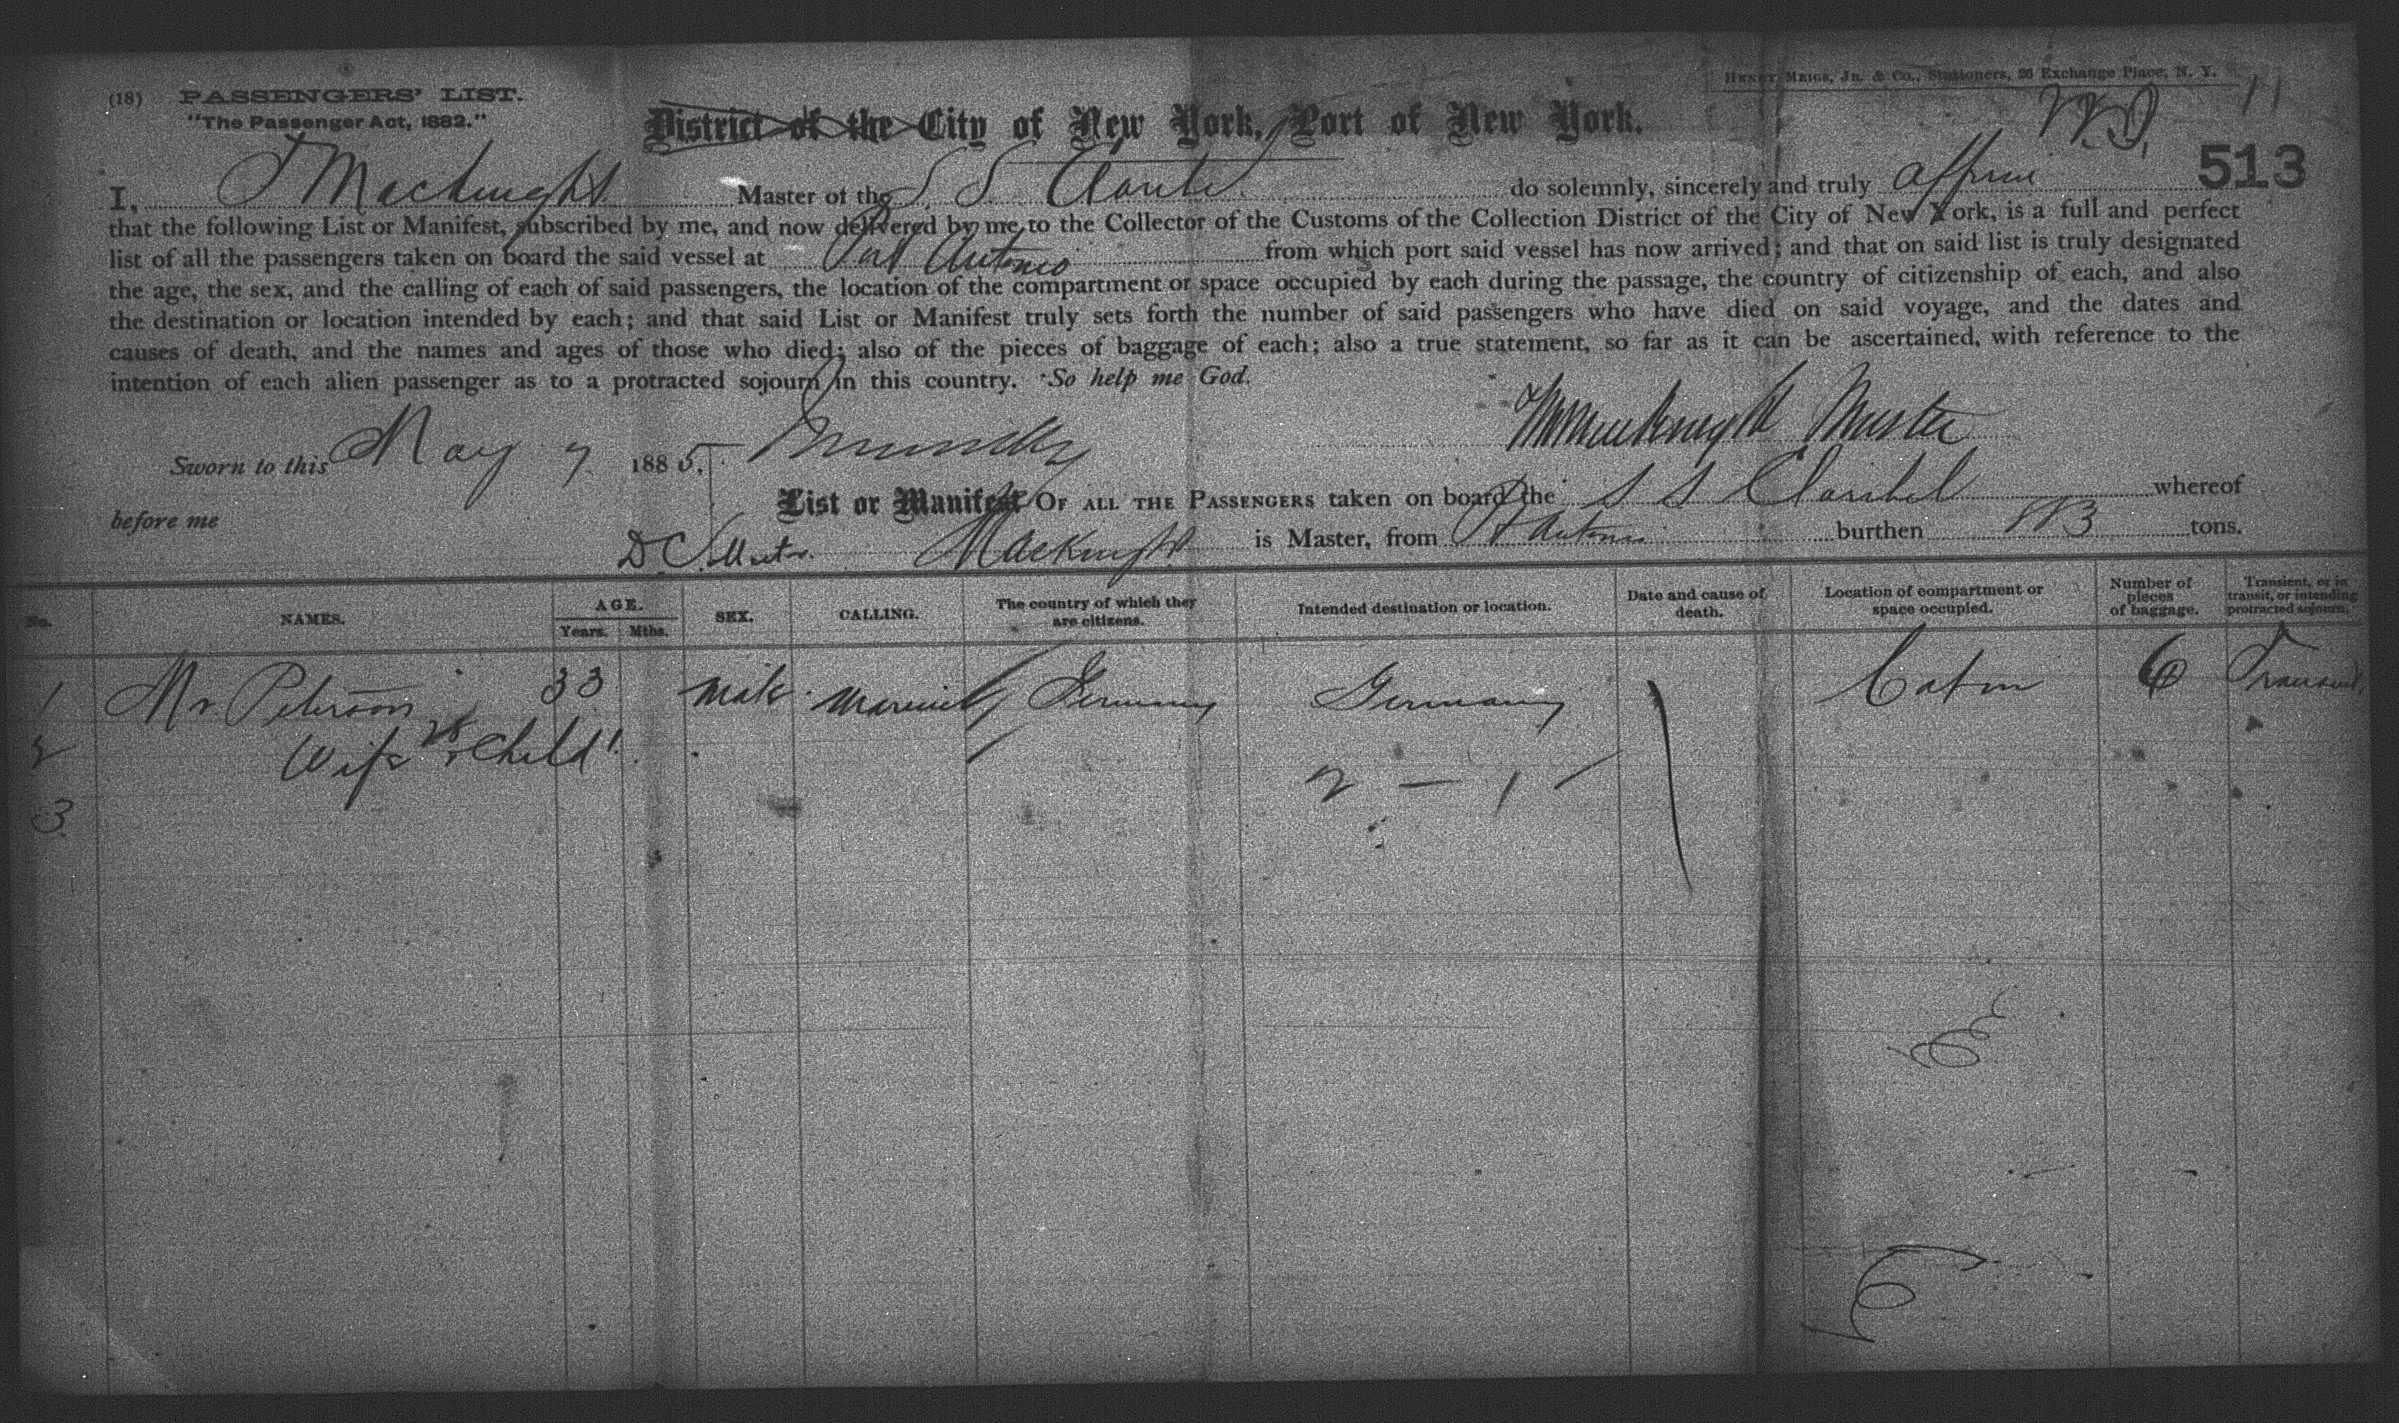 Henry Meigs, Jr. & Co., Stationers, 26 Exchange Place, N. Y.
(18) PASSENGERS' LIST.
"The Passenger Act, 1882."
11
District of the City of New York, Port of New York.
513
I, T Macknight Master of the S. S. Claribel do solemnly, sincerely and truly affirm
that the following List or Manifest, subscribed by me, and now delivered by me to the Collector of the Customs of the Collection District of the City of New York, is a full and perfect
list of all the passengers taken on board the said vessel at Port Antonio from which port said vessel has now arrived; and that on said list is truly designated
the age, the sex, and the calling of each of said passengers, the location of the compartment or space occupied by each during the passage, the country of citizenship of each, and also
the destination or location intended by each; and that said List or Manifest truly sets forth the number of said passengers who have died on said voyage, and the dates and
causes of death, and the names and ages of those who died; also of the pieces of baggage of each; also a true statement, so far as it can be ascertained, with reference to the
intention of each alien passenger as to a protracted sojourn in this country. So help me God.
Macknight Master
Sworn to this May 7 1885.
List or Manifest OF ALL THE PASSENGERS taken on board the S S Claribel whereof
before me
D Collector. Macknight is Master, from Pt Antonio burthen tons.
No. NAMES. AGE. Years. Mths. SEX. CALLING. The country of which they are citizens. Intended destination or location. Date and cause of death. Location of compartment or space occupied. Number of pieces of baggage. Transient, or in transit, or intending protracted sojourn.
1 Mr Peterson 33 Male Germany Germany Cabin 6 Transit
2 Wife & Child
2 — 1
3